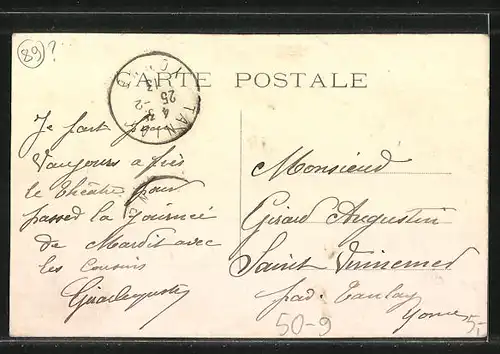 89?
CARTE POSTALE
TANLAY
4 3-2
25
13
Je part pour
Vaujours a près
le théâtre pour
passer la journée
de Mardit avec
les Cousins
Monsieur
Girard Augustin
Saint Vinnemer
par Tanlay
Yonne
50-9
5,-